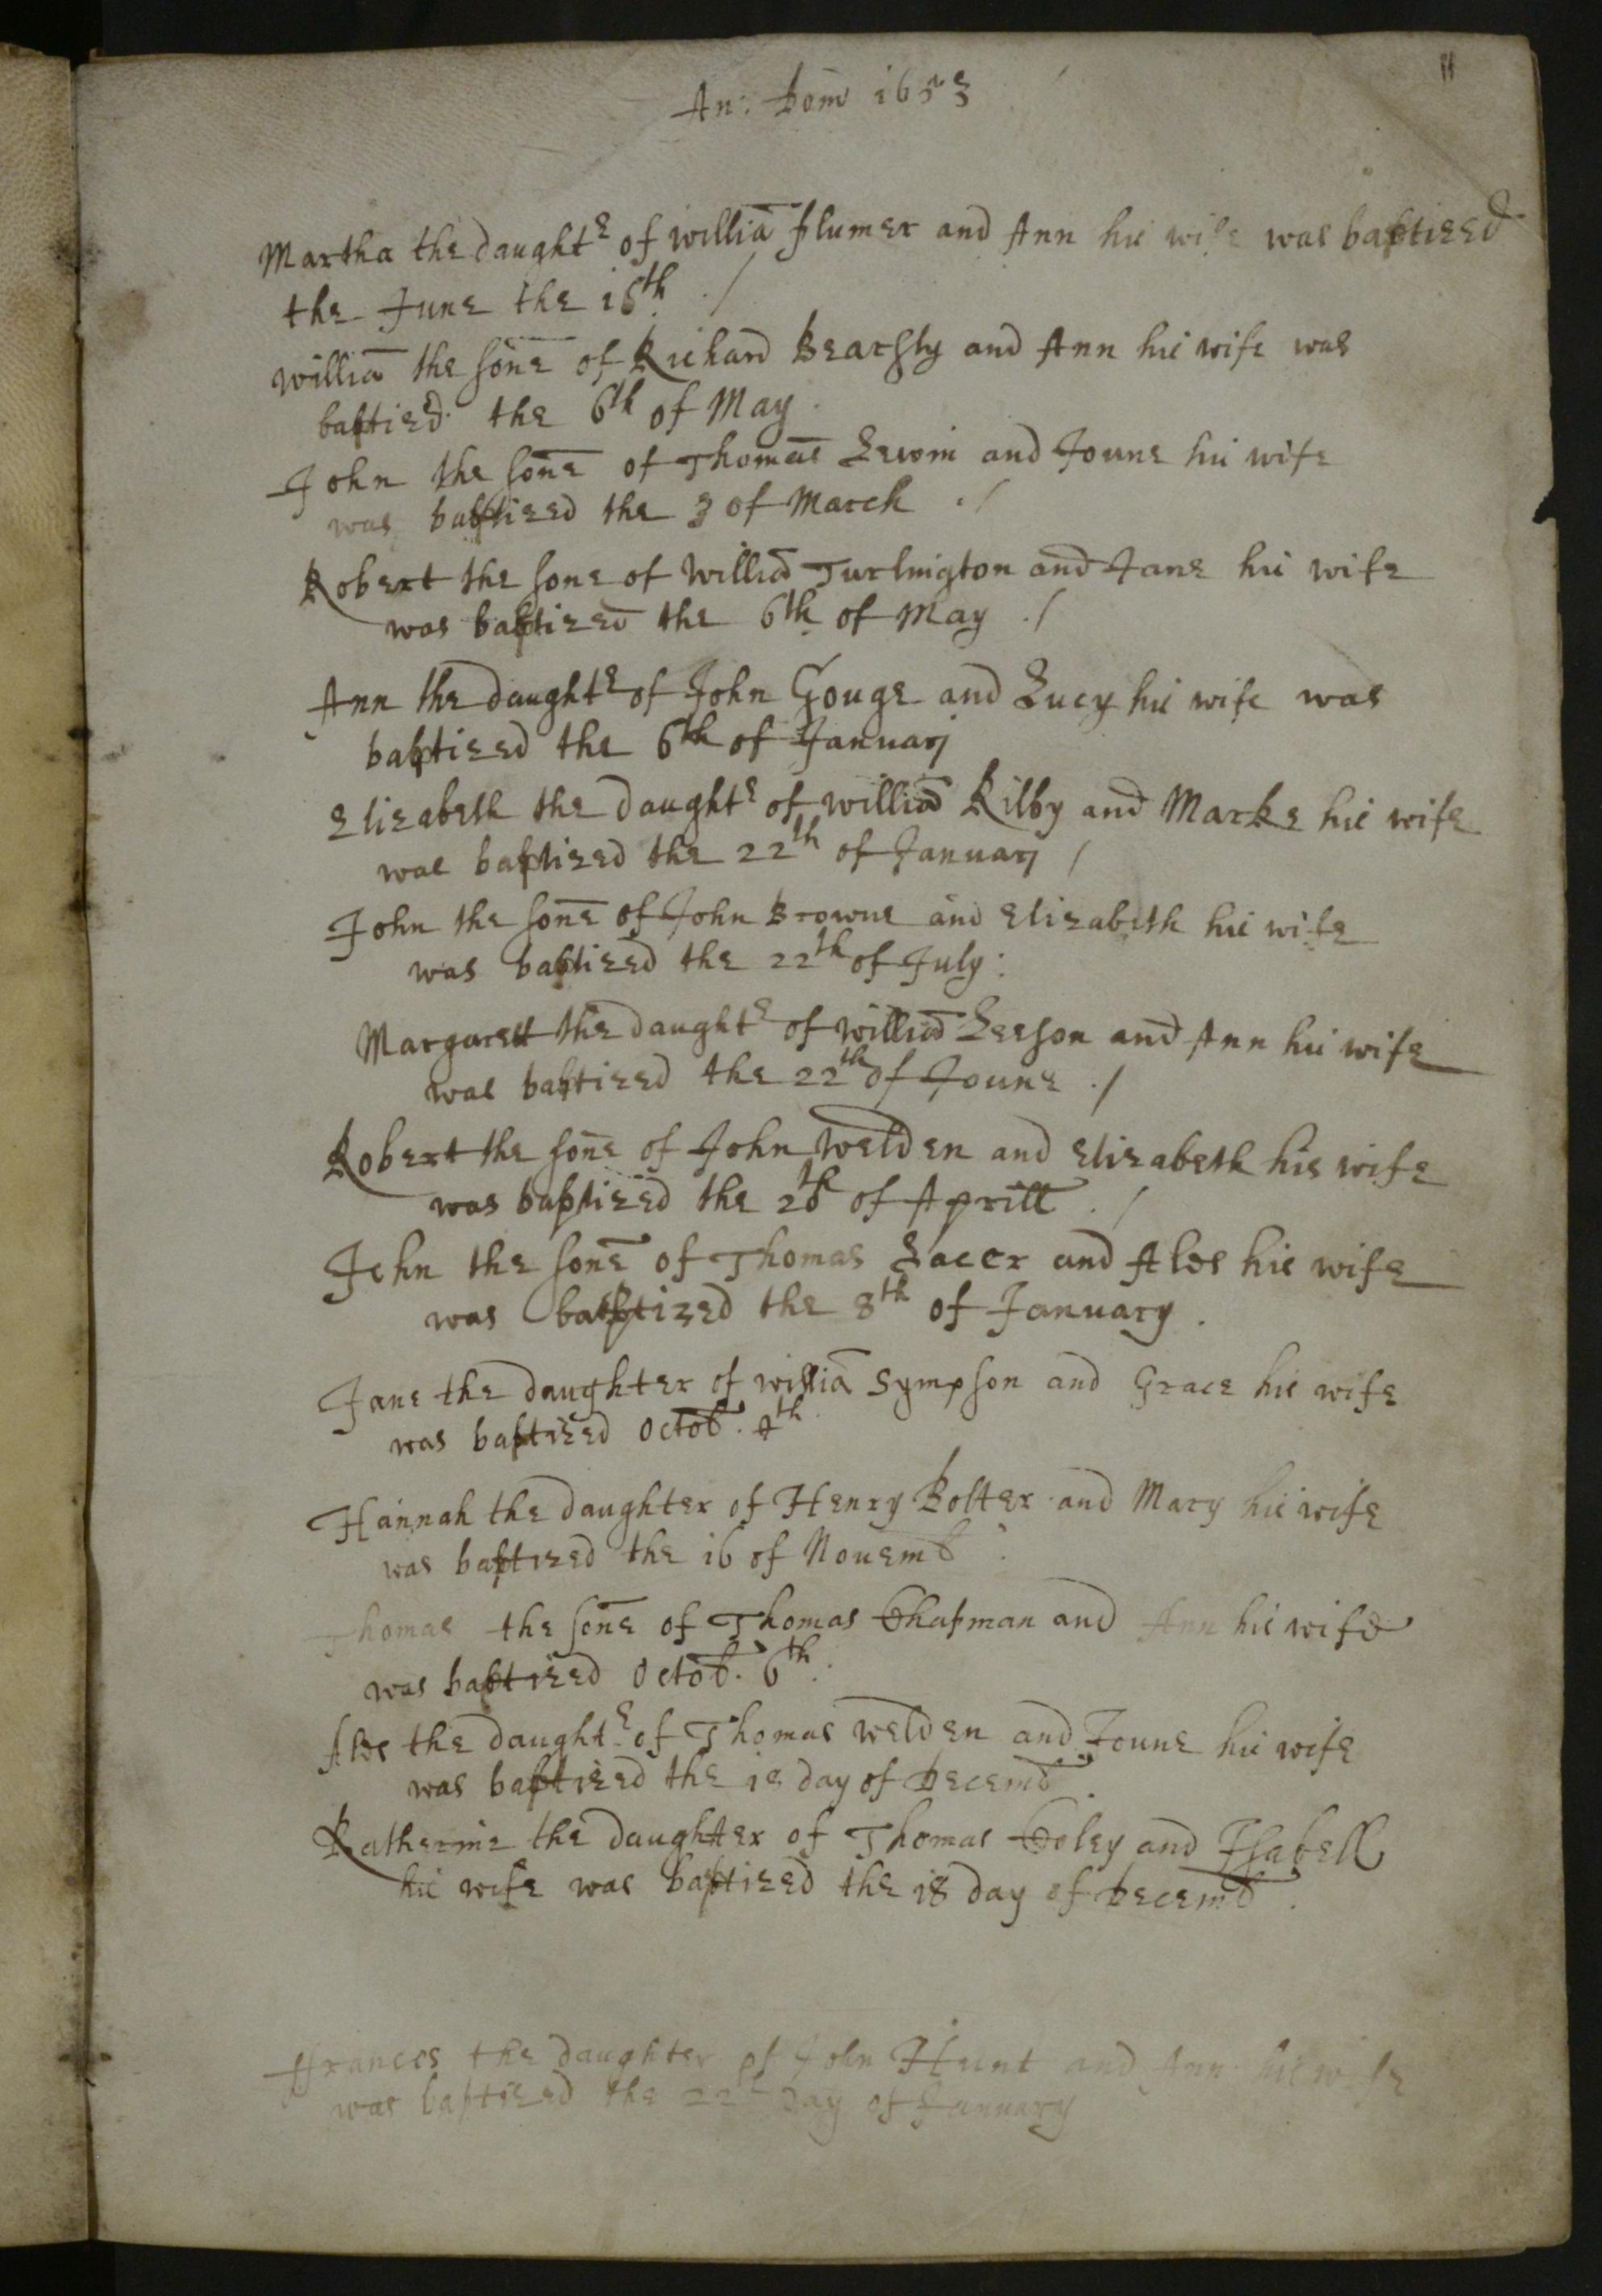 An: Dom 1653
11
Martha the daughte of Willia Plumer and Ann his wife was baptized
the June the 16th ./
Willia the sone of Richard Bearsly and Ann his wife was
baptized the 6th of May
John the sone of Thomas Lewin and Joune his wife
was baptized the 3 of March ./
Robert the sone of Willia Turlington and Jane his wife
was baptized the 6th of May ./
Ann the daughte of John Gouge and Lucy his wife was
baptized the 6th of January
Elizabeth the daughte of Willia Kilby and Marke his wife
was baptized the 22th of January /
John the sone of John Browne and Elizabeth his wife
was baptized the 22th of July:
Margarett the daughte of Willia Leeson and Ann his wife
was baptized the 22th of Joune ./
Robert the sone of John Welden and Elizabeth his wife
was baptized the of Aprill ./
John the sone of Thomas Lacer and Ales his wife
was baptized the 8th of January.
Jane the daughter of Willia Sympson and Grace his wife
was baptized Octob. th
Hannah the daughter of Henry Bolter and Mary his wife
was baptized the 16 of Nouemb
Thomas the sone of Thomas Chapman and Ann his wife
was baptized Octob. 6th.
Ales the daughte of Thomas Welden and Joune his wife
was baptized the 18 day of Decemb.
Katherine the daughter of Thomas Coley and Isabell
his wife was baptized the 18 day of Decemb.
ffrances the daughter of John Hunt and Ann his wife
was baptized the 22th day of January